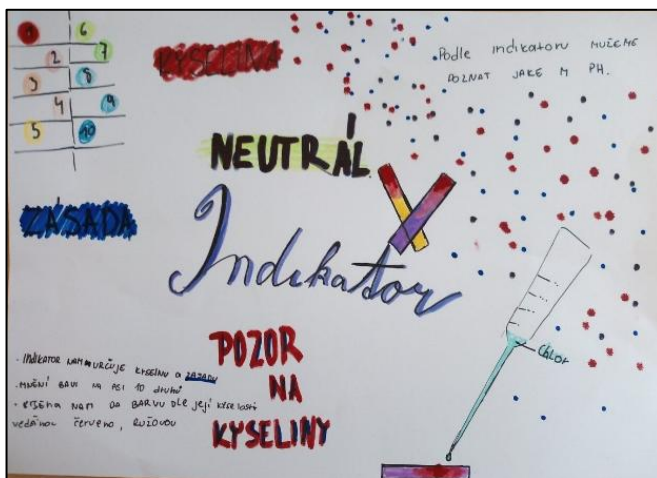 1
6
2
7
3
8
4
9
5
10
KYSELINA
Podle indikatoru mužeme
poznat jake m PH.
NEUTRÁL
ZÁSADA
Indikator
POZOR
NA
KYSELINY
CHLOR
· INDIKATOR NAM URČUJE KYSELINU a ZÁSADU
· MNĚNÍ BAVI NA PSI 10 druhů
· NAM DA BARVU DLE její kyselosti
červeno, RUŽOVOU